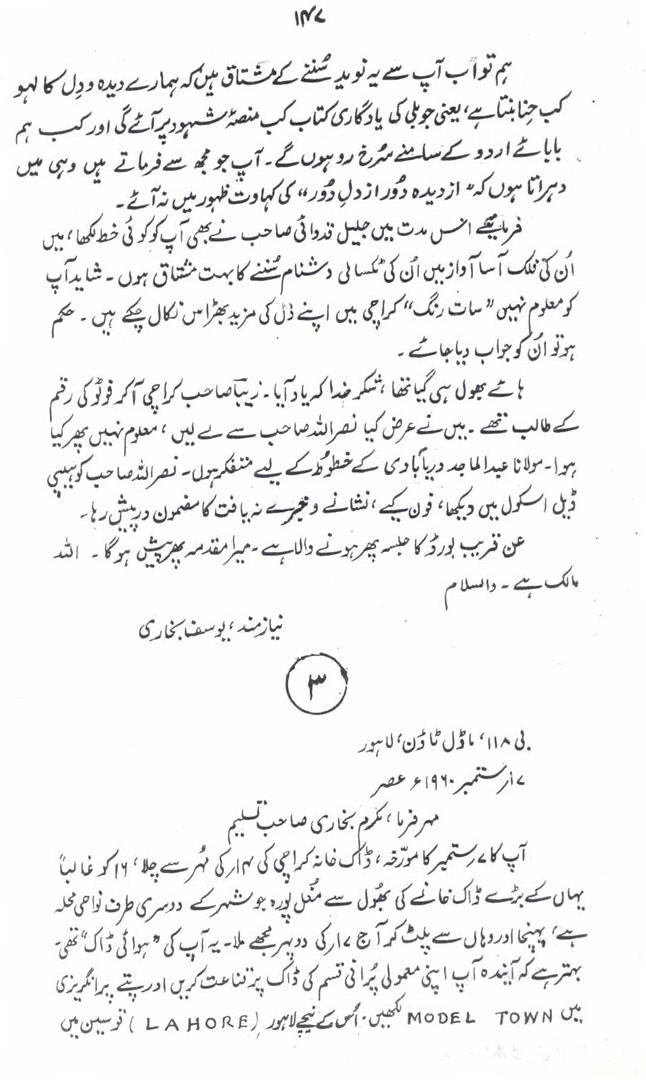 ۱۴۷
ہم تو اب آپ سے یہ نوید سُننے کے مشتاق ہیں کہ ہمارے دیدہ و دِل کا لہو
کب حِنا بنتا ہے، یعنی جوبلی کی یادگاری کتاب کب منصّۂ شہود پر آئے گی اور کب ہم
بابائے اردو کے سامنے سُرخ رو ہوں گے۔ آپ جو مجھ سے فرماتے ہیں وہی میں
دہراتا ہوں کہ "از دیدہ دُور از دلِ دُور" کی کہاوت ظہور میں نہ آئے۔
فرمائیے اس مدت میں جلیل قدوائی صاحب نے بھی آپ کو کوئی خط لکھا، میں
اُن کی فلک آسا آواز میں اُن کی ٹکسالی دشنام سُننے کا بہت مشتاق ہوں۔ شاید آپ
کو معلوم نہیں "سات رنگ" کراچی میں اپنے دل کی مزید بھڑاس نکال چکے ہیں۔ حکم
ہو تو اُن کو جواب دیا جائے۔
ہائے بھول ہی گیا تھا، شکر خدا کہ یاد آیا۔ زیبا صاحب کراچی آکر فوٹو کی رقم
کے طالب تھے۔ میں نے عرض کیا نصر اللہ صاحب سے لے لیں، معلوم نہیں پھر کیا
ہوا۔ مولانا عبدالماجد دریابادی کے خطوط کے لیے متفکر ہوں۔ نصر اللہ صاحب کو ہیپی
ڈیل اسکول میں دیکھا، فون کیے، نشانے و غیرے نہ یافت کا مضمون درپیش رہا۔
عن قریب بورڈ کا جلسہ پھر ہونے والا ہے۔ میرا مقدمہ پھر پیش ہوگا۔ اللہ
مالک ہے۔ والسلام
نیاز مند، یوسف بخاری
۳
بی ۱۱۸، ماڈل ٹاؤن، لاہور
۱۷ ستمبر ۱۹۶۰ء عصر
مہر فرما، مکرم بخاری صاحب تسلیم
آپ کا ۷ ستمبر کا مورّخہ، ڈاک خانہ کراچی کی ۱۴ر کی مُہر سے چلا، ۱۶ کو غالباً
یہاں کے بڑے ڈاک خانے کی بھُول سے مُغل پورہ جو شہر کے دوسری طرف نواحی محلہ
ہے، پہنچا اور وہاں سے پلٹ کر آج ۱۷ر کی دوپہر مجھے ملا۔ یہ آپ کی "ہوائی ڈاک" تھی۔
بہتر ہے کہ آیندہ آپ اپنی معمولی پُرانی قسم کی ڈاک پر قناعت کریں اور پتے پر انگریزی
میں MODEL TOWN لکھیں۔ اُس کے نیچے لاہور (LAHORE) قوسین میں